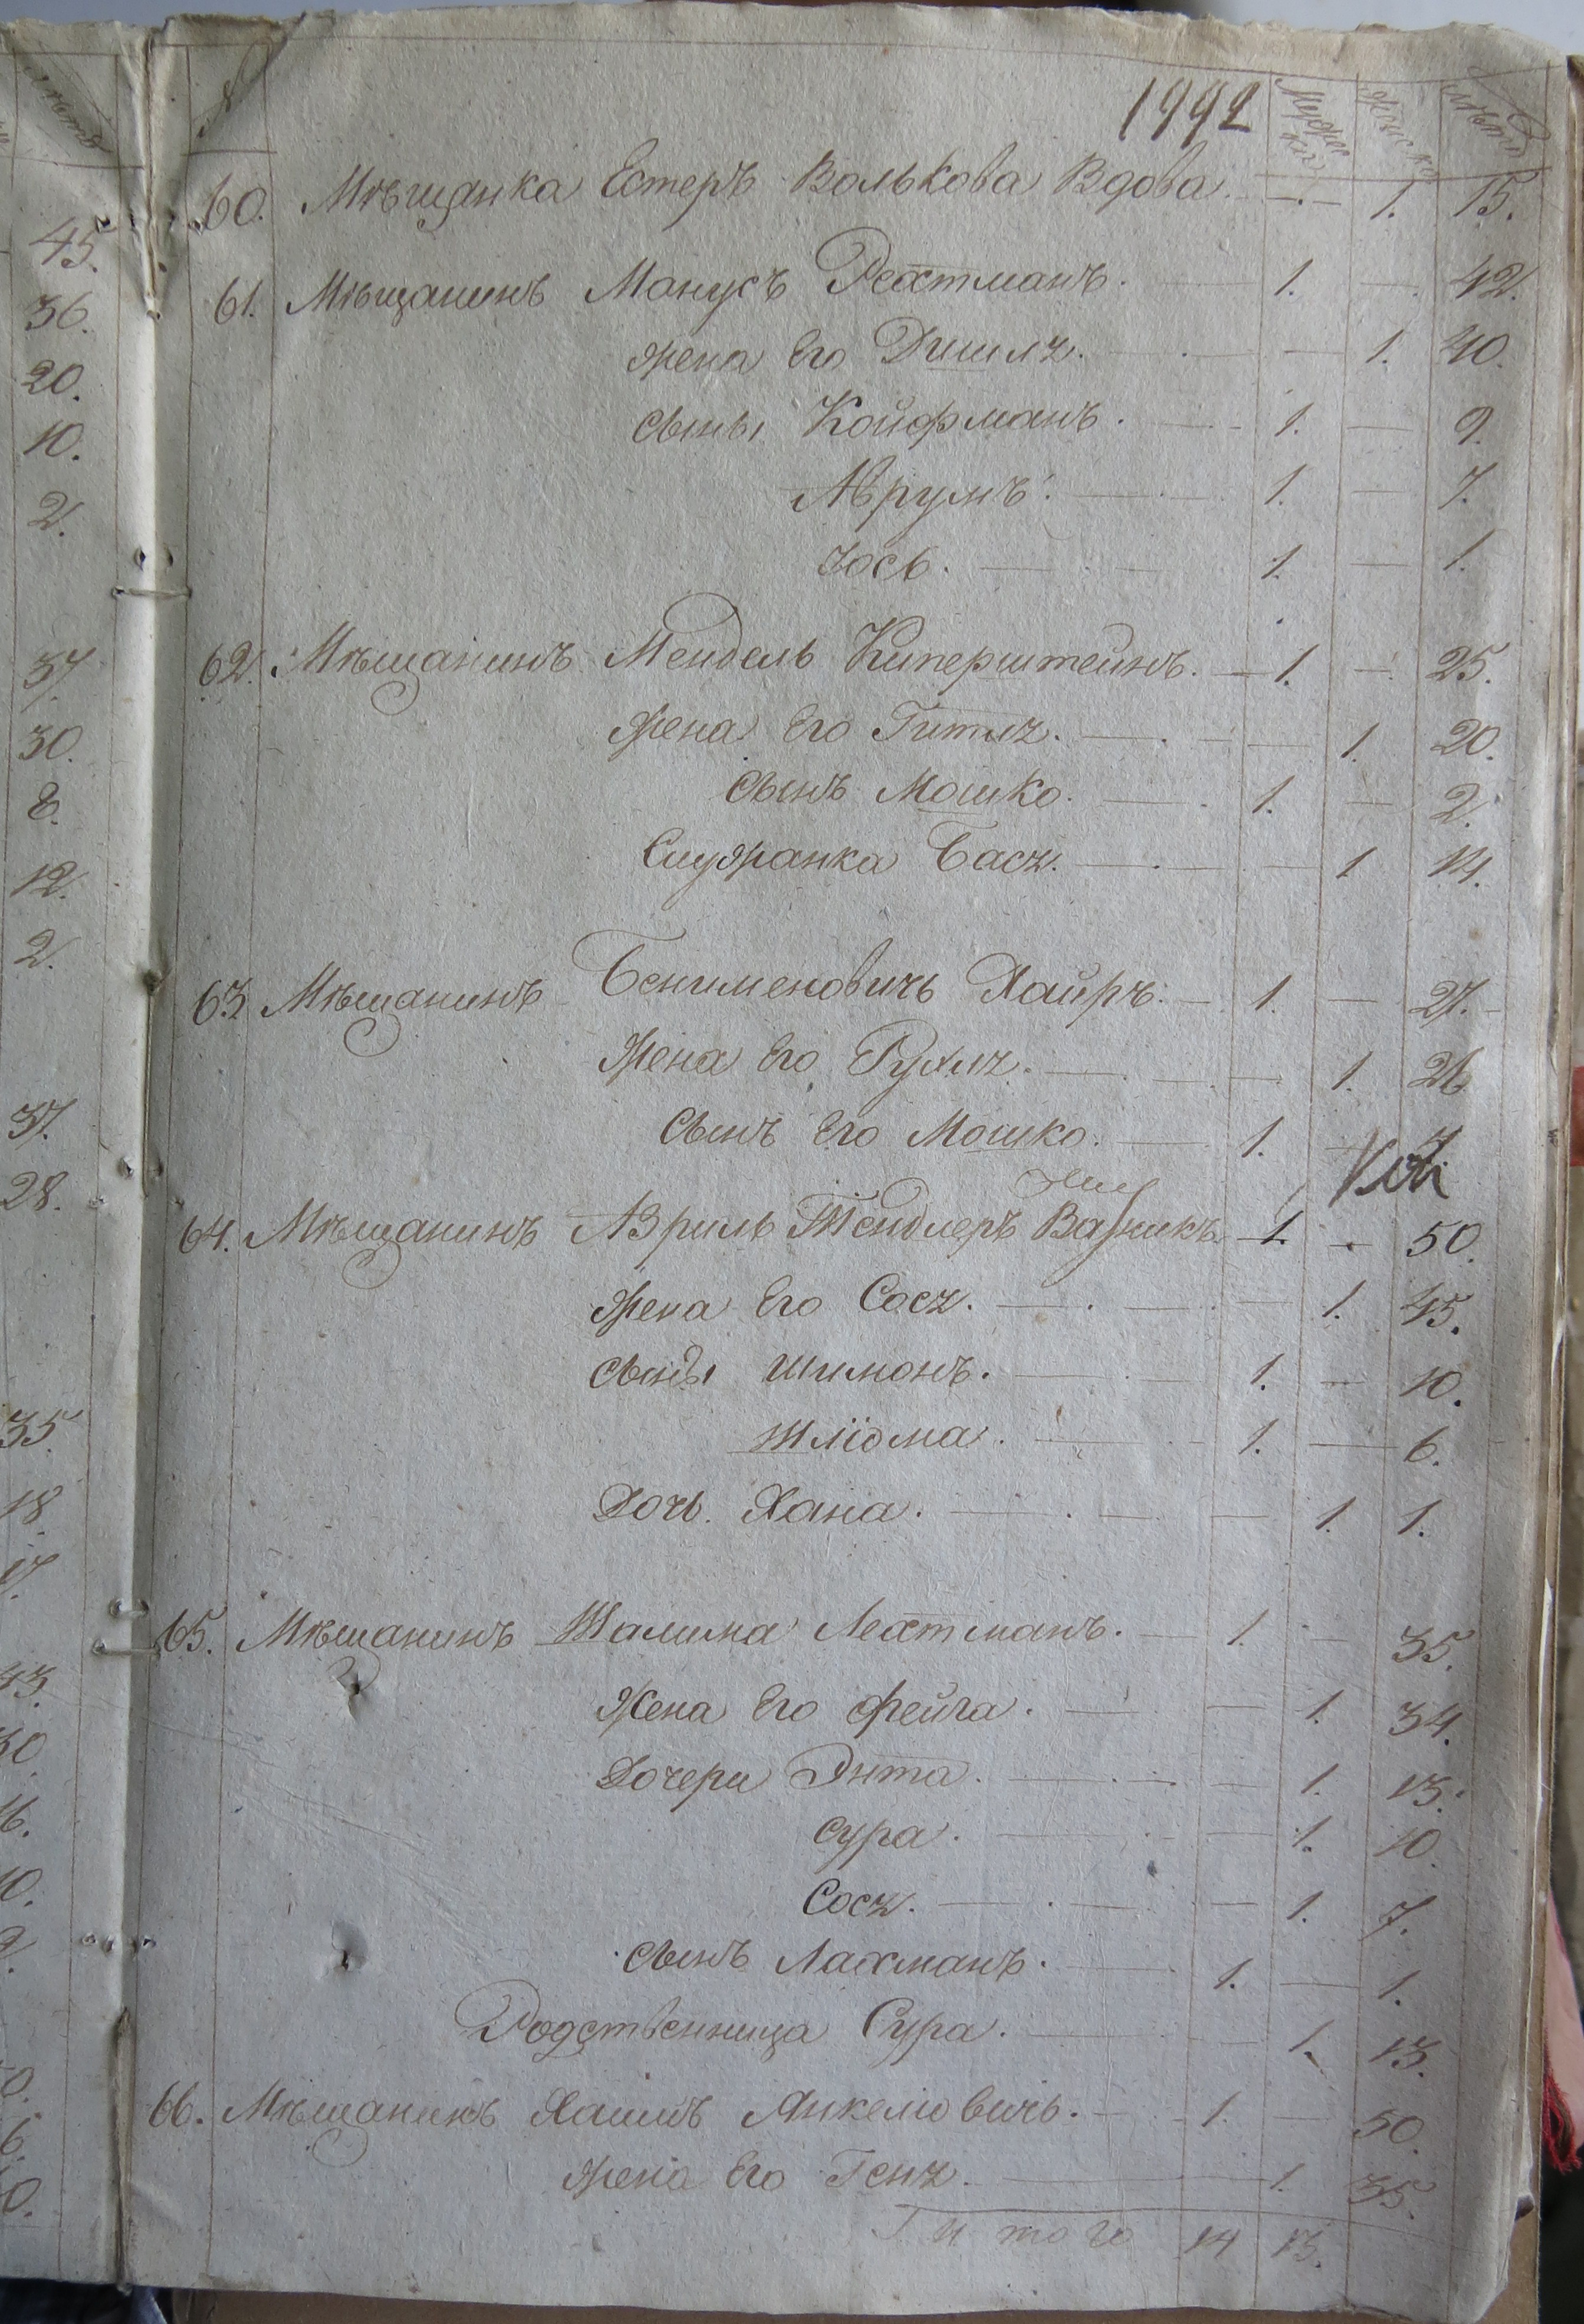 1992
№ Мужеска Женска лѣта
60. Мѣщанка Естеръ Волькова Вдова. — 1. 15.
61. Мѣщанинъ Манусъ Рехтманъ. 1. — 42.
жена Его Дишля. — 1. 40.
сыны Койфманъ. 1. — 9.
Аврумъ. 1. — 7.
Іось. 1. — 1.
62. Мѣщанинъ Мендель Киперштейнъ. 1. — 25.
жена Его Гитля. — 1. 20.
сынъ Мошко. 1. — 2.
Служанка Бася. — 1 14.
63. Мѣщанинъ Бенименовичь Хаимъ. 1. — 27.
жена Его Рухля. — 1. 26
сынъ Его Мошко. 1. —
64. Мѣщанинъ Азриль Тендлеръ 1. — 50.
жена Его Сося. — 1. 45.
сыны Шимонъ. 1. — 10.
Шліома. 1. — 6.
Дочь Хана. — 1. 1.
65. Мѣщанинъ Шалима Лехтманъ. 1. — 35.
Жена Его Фейга. — 1. 34.
Дочери Энта. — 1. 13.
сура. — 1. 10.
Сося. — 1. 7.
сынъ Лахманъ. 1. — 1.
Родственница Сура. — 1. 13.
66. Мѣщанинъ Хаимъ Янкеліовичь. 1. — 50.
жена Его Геня. — 1. 35.
Итого 14 13.
45.
36.
20.
10.
2.
37.
30.
8.
12.
2.
37.
28.
35.
18.